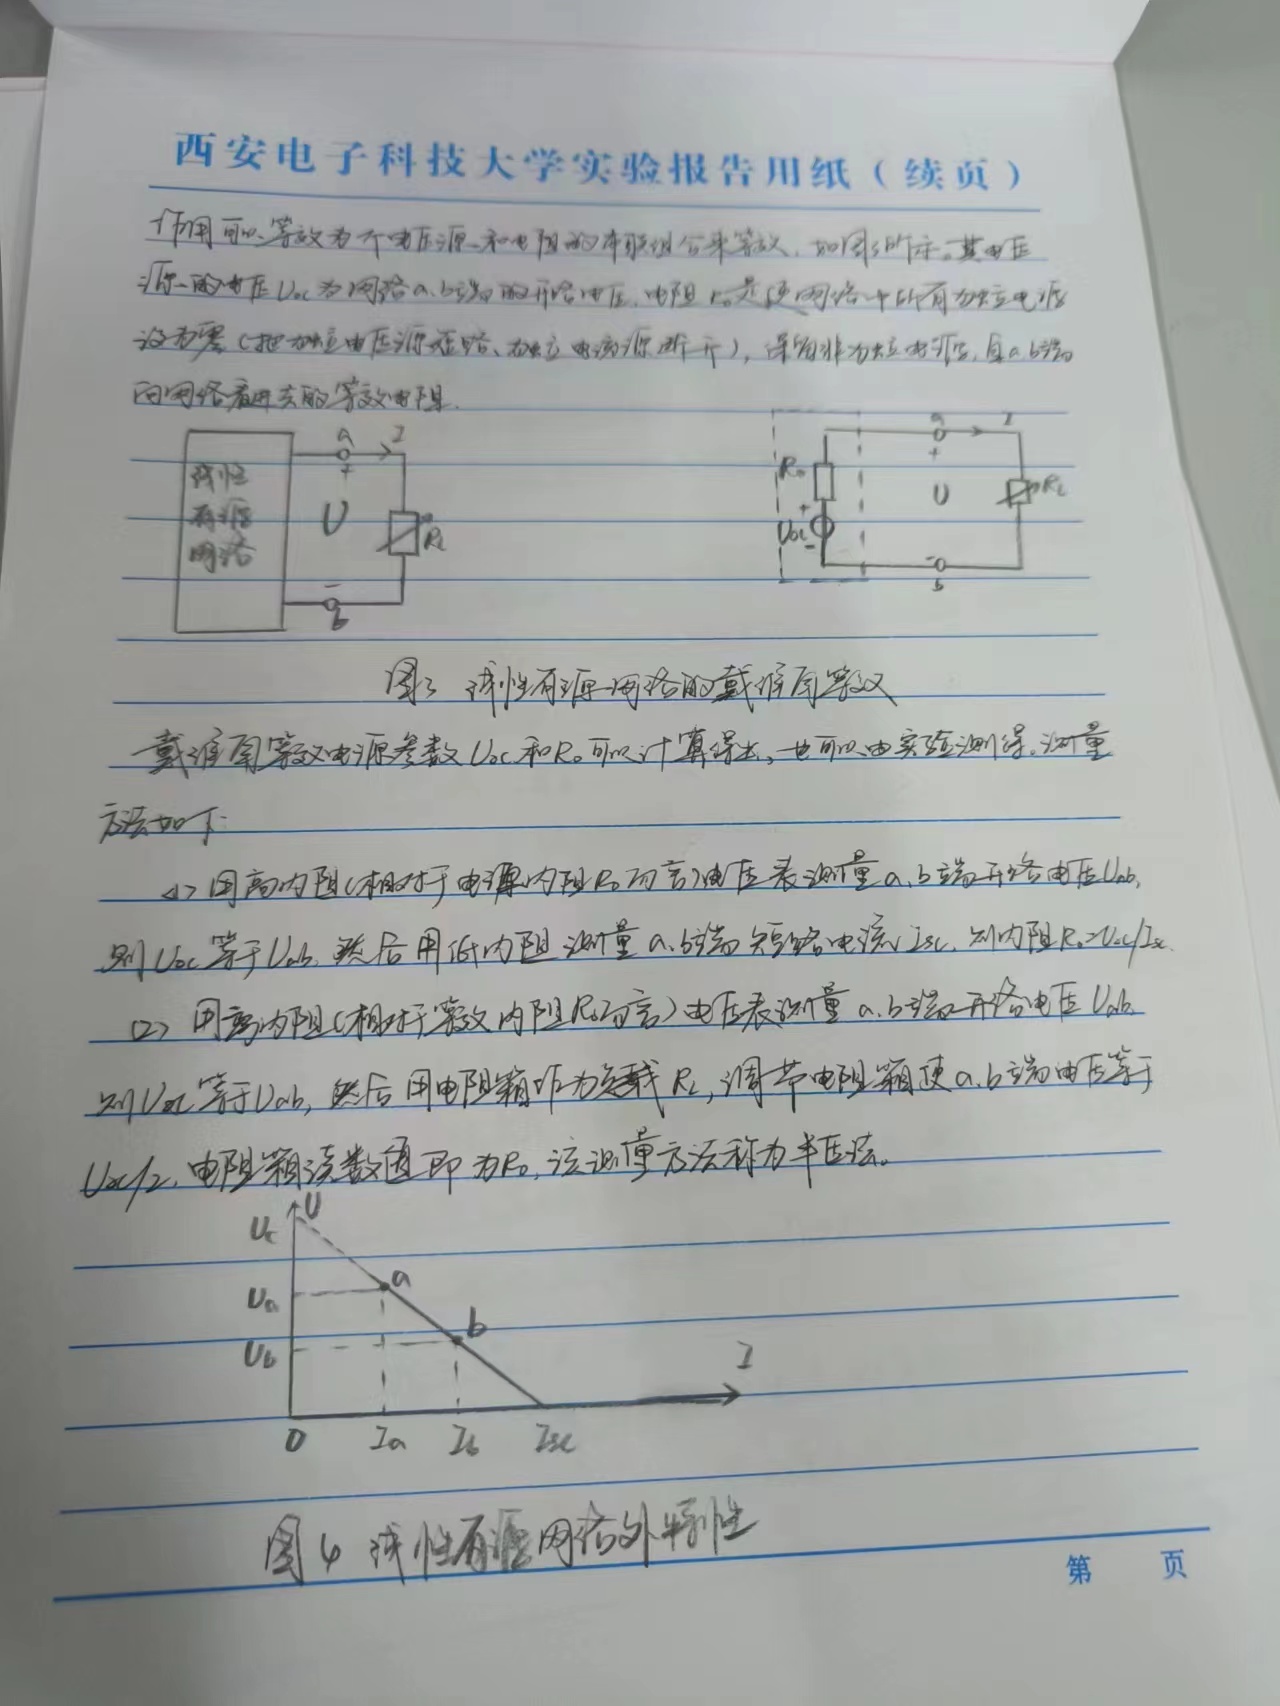 西安电子科技大学实验报告用纸（续页）
作用可以等效为一个电压源和电阻的串联组合来等效，如图3所示。其电压
源的电压Uoc为网络a、b端的开路电压，电阻R₀是使网络中所有独立电源
设为零（把独立电压源短路、独立电流源断开），保留非独立电源，自a、b端
向网络看进去的等效电阻.
a I
线性
有源
网络
+
U
RL
-
b
a I
R₀
+
Uoc
-
+
U
RL
-
b
图3 线性有源网络的戴维南等效
戴维南等效电源参数Uoc和R₀可以计算得出，也可以由实验测得.测量
方法如下:
(1) 用高内阻(相对于电源内阻R₀而言)电压表测量a、b端开路电压Uab,
则Uoc等于Uab. 然后用低内阻测量a、b端短路电流Isc. 则内阻R₀=Uoc/Isc.
(2) 用高内阻(相对于等效内阻R₀而言)电压表测量a、b端开路电压Uab,
则Uoc等于Uab, 然后用电阻箱作为负载RL,调节电阻箱使a、b端电压等于
Uoc/2, 电阻箱读数值即为R₀, 该测量方法称为半压法。
U
Uc
a
Ua
b
Ub
I
0 Ia Ib Isc
图4 线性有源网络外特性
第 页